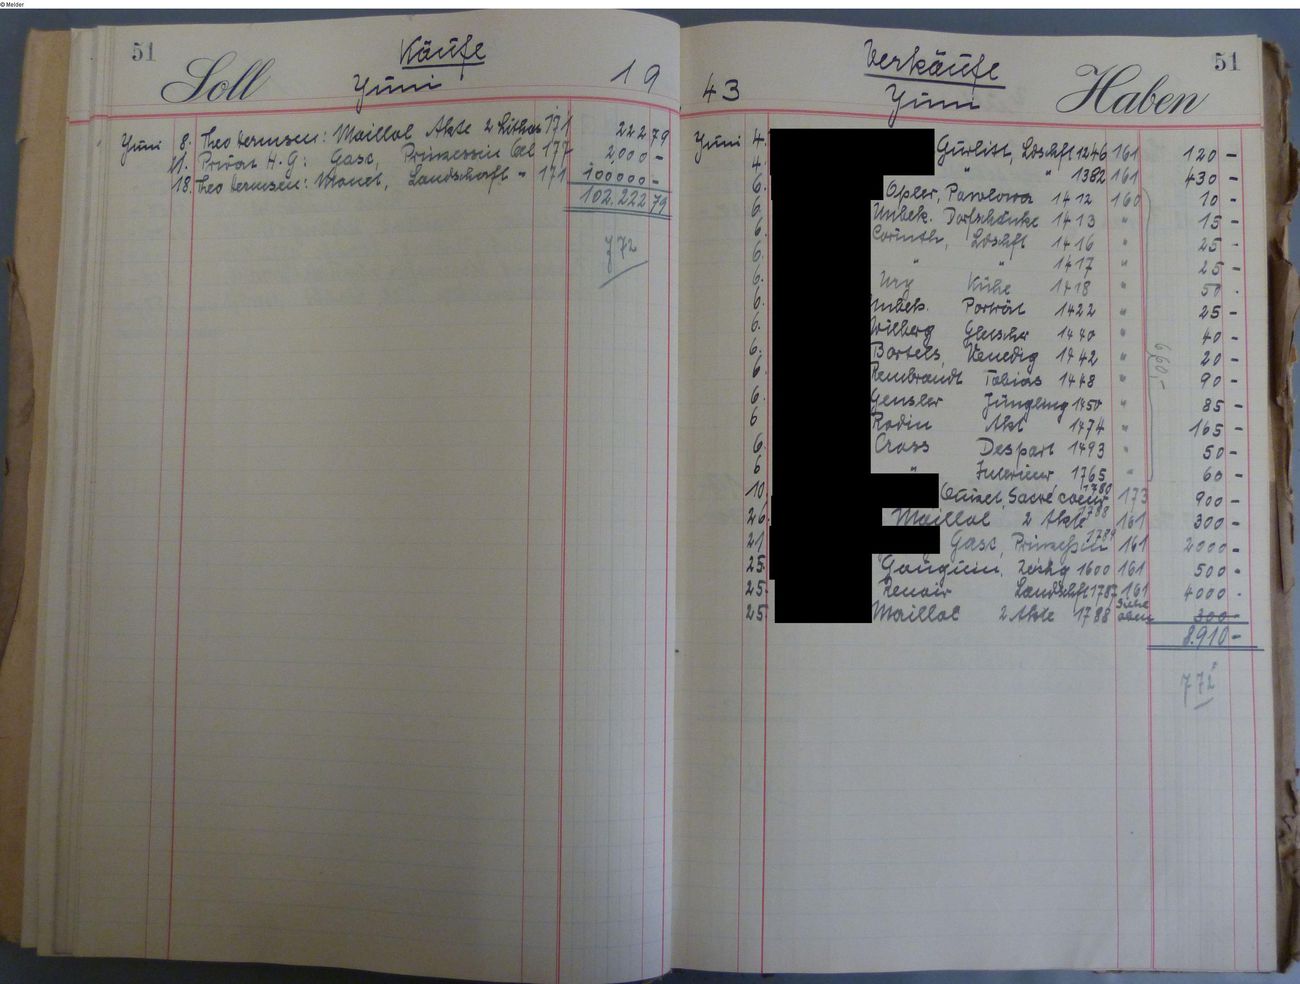 © Melder
51
Soll
Käufe
Juni
19
Juni 8. Theo Hermsen: Maillol Akte 2 Lithos 171 222 79
11. Privat H. G.: Gasc, Prinzessin Oel 177 2000 -
18. Theo Hermsen: Monet, Landschaft " 171 100000 -
102.222 79
772
43
Verkäufe
Juni
Haben
51
Juni 4. Gurlitt, Ldschft 1246 161 120 -
4. " " 1382 161 430 -
6. Opler, Pawlowa 1412 160 10 -
6. Unbek. Dorfschänke 1413 " 15 -
6. Corinth, Ldschft 1416 " 25 -
6. " " 1417 " 25 -
6. Ury Kühe 1418 " 50 -
6. Unbek. Porträt 1422 " 25 -
6. Wilberg Gletscher 1440 " 40 -
6. Bartels, Venedig 1442 " 20 -
6. Rembrandt Tobias 1448 " 90 -
6. Gensler Jüngling 1450 " 85 -
6 Rodin Akt 1474 " 165 -
6. Cross 1493 " 50 -
6 " Interieur, 1765 " 60 -
660.-
10 Sacré coeur 1780 173 900 -
26 Maillol 2 Akte 1788 161 300 -
21 Gasc, Prinzessin 1789 161 2000 -
25. Gauguin, 1600 161 500 -
25. Renoir Landschft 1787 161 4000 -
25. Maillol 2 Akte 1788 siehe oben 300 -
8.910 -
772